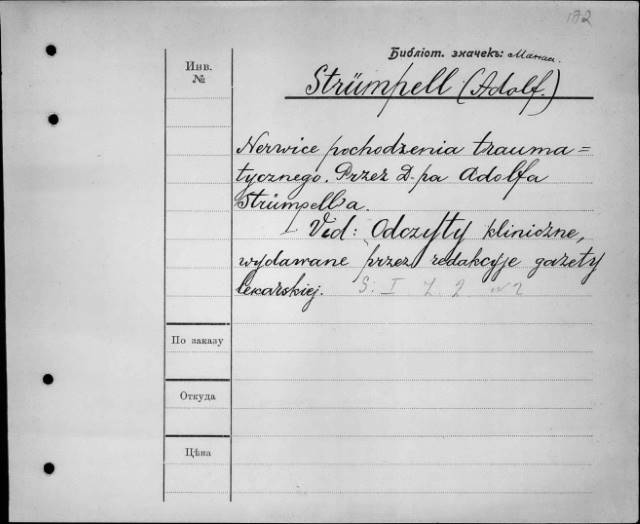 172
Библіот. значекъ:
Инв.
№
Strümpell (Adolf.)
Nerwice pochodzenia trauma=
tycznego. Przez D-ra Adolfa
Strümpell'a.
Vid: Odczyty kliniczne,
wydawane przez redakcyje gazety
lekarskiej. S. I Z. 2. № 2
По заказу
Откуда
Цѣна